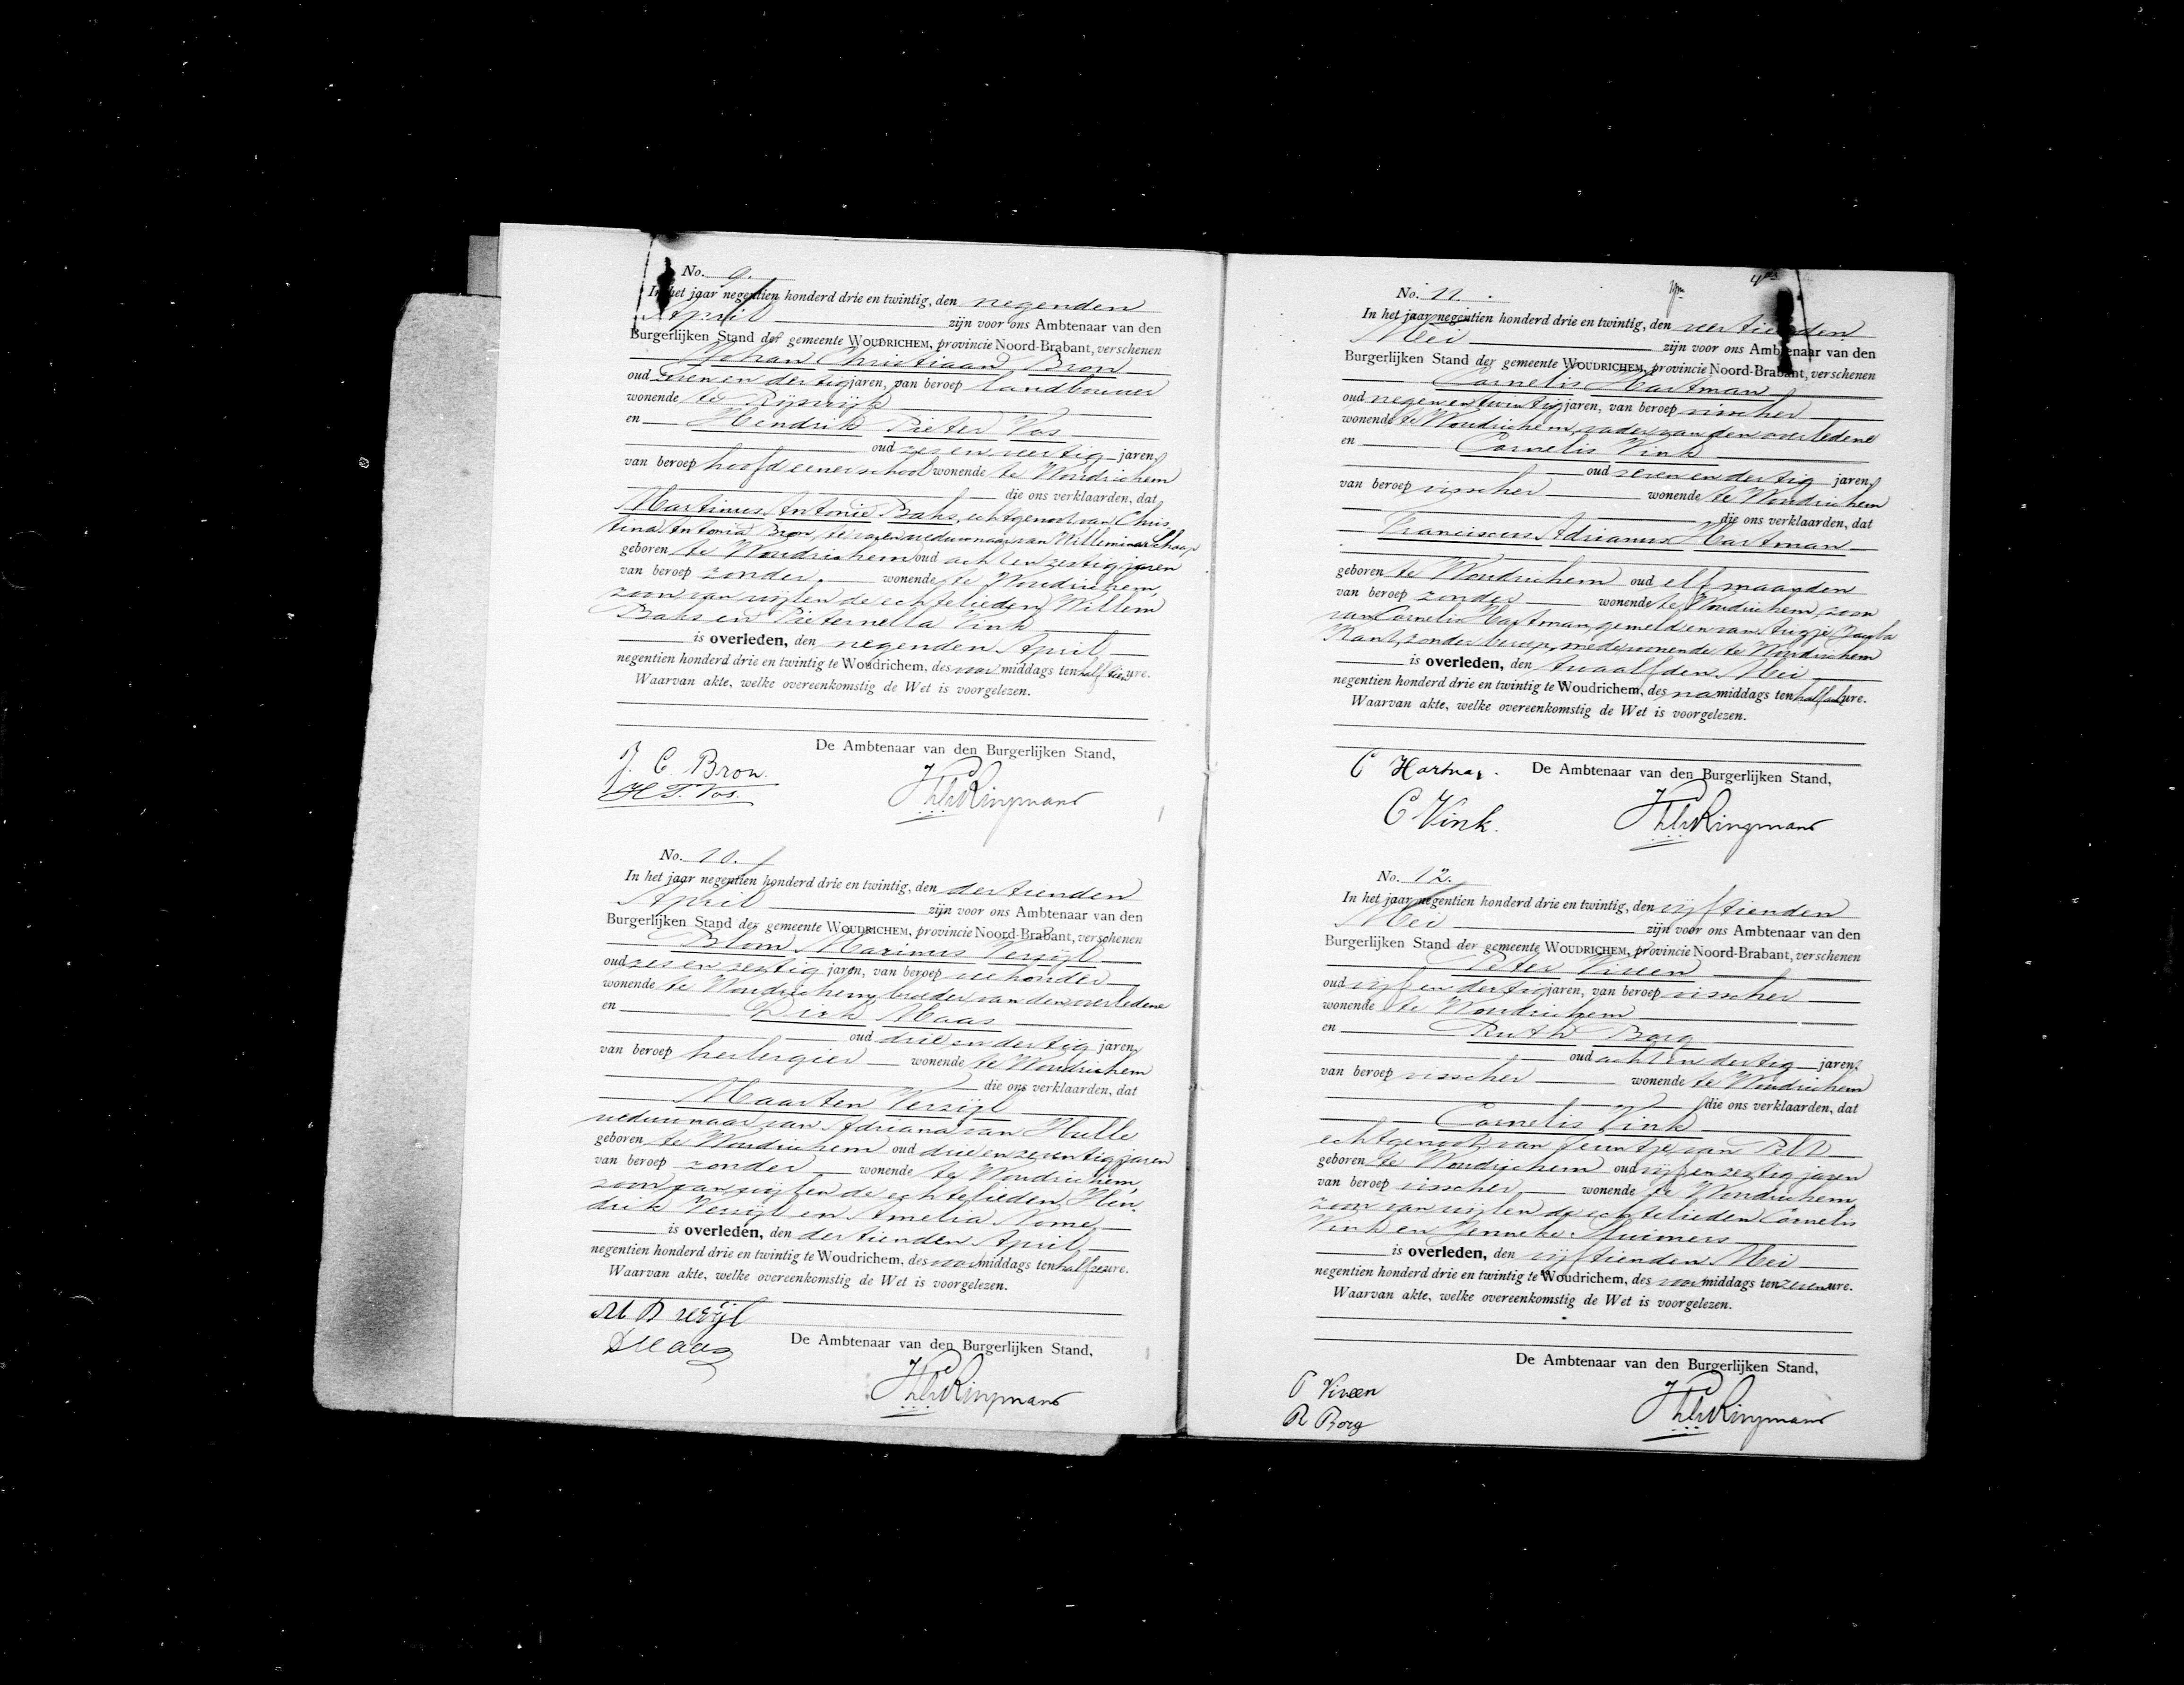 No. 9.
In het jaar negentien honderd drie en twintig, den negenden
April zijn voor ons Ambtenaar van den
Burgerlijken Stand der gemeente WOUDRICHEM, provincie Noord-Brabant, verschenen
Johan Christiaan Bron
oud zeven en dertig jaren, van beroep landbouwer
wonende te Rijswijk
en Hendrik Pieter Vos
oud zes en veertig jaren,
van beroep hoofd eener school wonende te Woudrichem
die ons verklaarden, dat
Martinus Antonie Baks, echtgenoot van Chris
tina Antonia Bron, te voren weduwnaar van Willemina Schaap
geboren te Woudrichem oud acht en zestig jaren
van beroep zonder, wonende te Woudrichem,
zoon van wijlen de echtelieden Willem
Baks en Pieternella Vink
is overleden, den negenden April
negentien honderd drie en twintig te Woudrichem, des voormiddags ten half tien ure.
Waarvan akte, welke overeenkomstig de Wet is voorgelezen.
De Ambtenaar van den Burgerlijken Stand,
J. C. Bron.
H P. Vos.
No. 10.
In het jaar negentien honderd drie en twintig, den dertienden
April zijn voor ons Ambtenaar van den
Burgerlijken Stand der gemeente WOUDRICHEM, provincie Noord-Brabant, verschenen
Blom Marinus Verzijl
oud zes en zestig jaren, van beroep veehouder
wonende te Woudrichem, broeder van den overledene
en Dirk Maas
oud drie en dertig jaren,
van beroep herbergier wonende te Woudrichem
die ons verklaarden, dat
Maarten Verzijl
weduwnaar van Adriana van Hulle
geboren te Woudrichem oud drie en zeventig jaren
van beroep zonder, wonende te Woudrichem,
zoon van wijlen de echtelieden Hen
drik Verzijl en Amelia Nome
is overleden, den dertienden April
negentien honderd drie en twintig te Woudrichem, des voormiddags ten half zes ure.
Waarvan akte, welke overeenkomstig de Wet is voorgelezen.
D Maas
De Ambtenaar van den Burgerlijken Stand,
No. 11.
In het jaar negentien honderd drie en twintig, den veertienden
Mei zijn voor ons Ambtenaar van den
Burgerlijken Stand der gemeente WOUDRICHEM, provincie Noord-Brabant, verschenen
Cornelis Hartman
oud negen en twintig jaren, van beroep visscher
wonende te Woudrichem, vader van den overledene
en Cornelis Vink
oud zeven en dertig jaren,
van beroep visscher wonende te Woudrichem
die ons verklaarden, dat
Franciscus Adrianus Hartman
geboren te Woudrichem oud elf maanden
van beroep zonder wonende te Woudrichem, zoon
van Cornelis Hartman, gemeld en van
Kant, zonder beroep, mede wonende te Woudrichem
is overleden, den twaalfden Mei
negentien honderd drie en twintig te Woudrichem, des namiddags ten half acht ure.
Waarvan akte, welke overeenkomstig de Wet is voorgelezen.
C Hartman. De Ambtenaar van den Burgerlijken Stand,
C Vink.
No. 12.
In het jaar negentien honderd drie en twintig, den vijftienden
Mei zijn voor ons Ambtenaar van den
Burgerlijken Stand der gemeente WOUDRICHEM, provincie Noord-Brabant, verschenen
Peter Viveen
oud vijf en dertig jaren, van beroep visscher
wonende te Woudrichem
en Ruth Borg
oud acht en dertig jaren,
van beroep visscher wonende te Woudrichem
die ons verklaarden, dat
Cornelis Vink
echtgenoot van Teuntje van Pelt
geboren te Woudrichem oud vijf en zestig jaren
van beroep visscher, wonende te Woudrichem,
zoon van wijlen de echtelieden Cornelis
Vink en Jenneke Muimers
is overleden, den vijftienden Mei
negentien honderd drie en twintig te Woudrichem, des voormiddags ten zeven ure.
Waarvan akte, welke overeenkomstig de Wet is voorgelezen.
De Ambtenaar van den Burgerlijken Stand,
P Viveen
R Borg